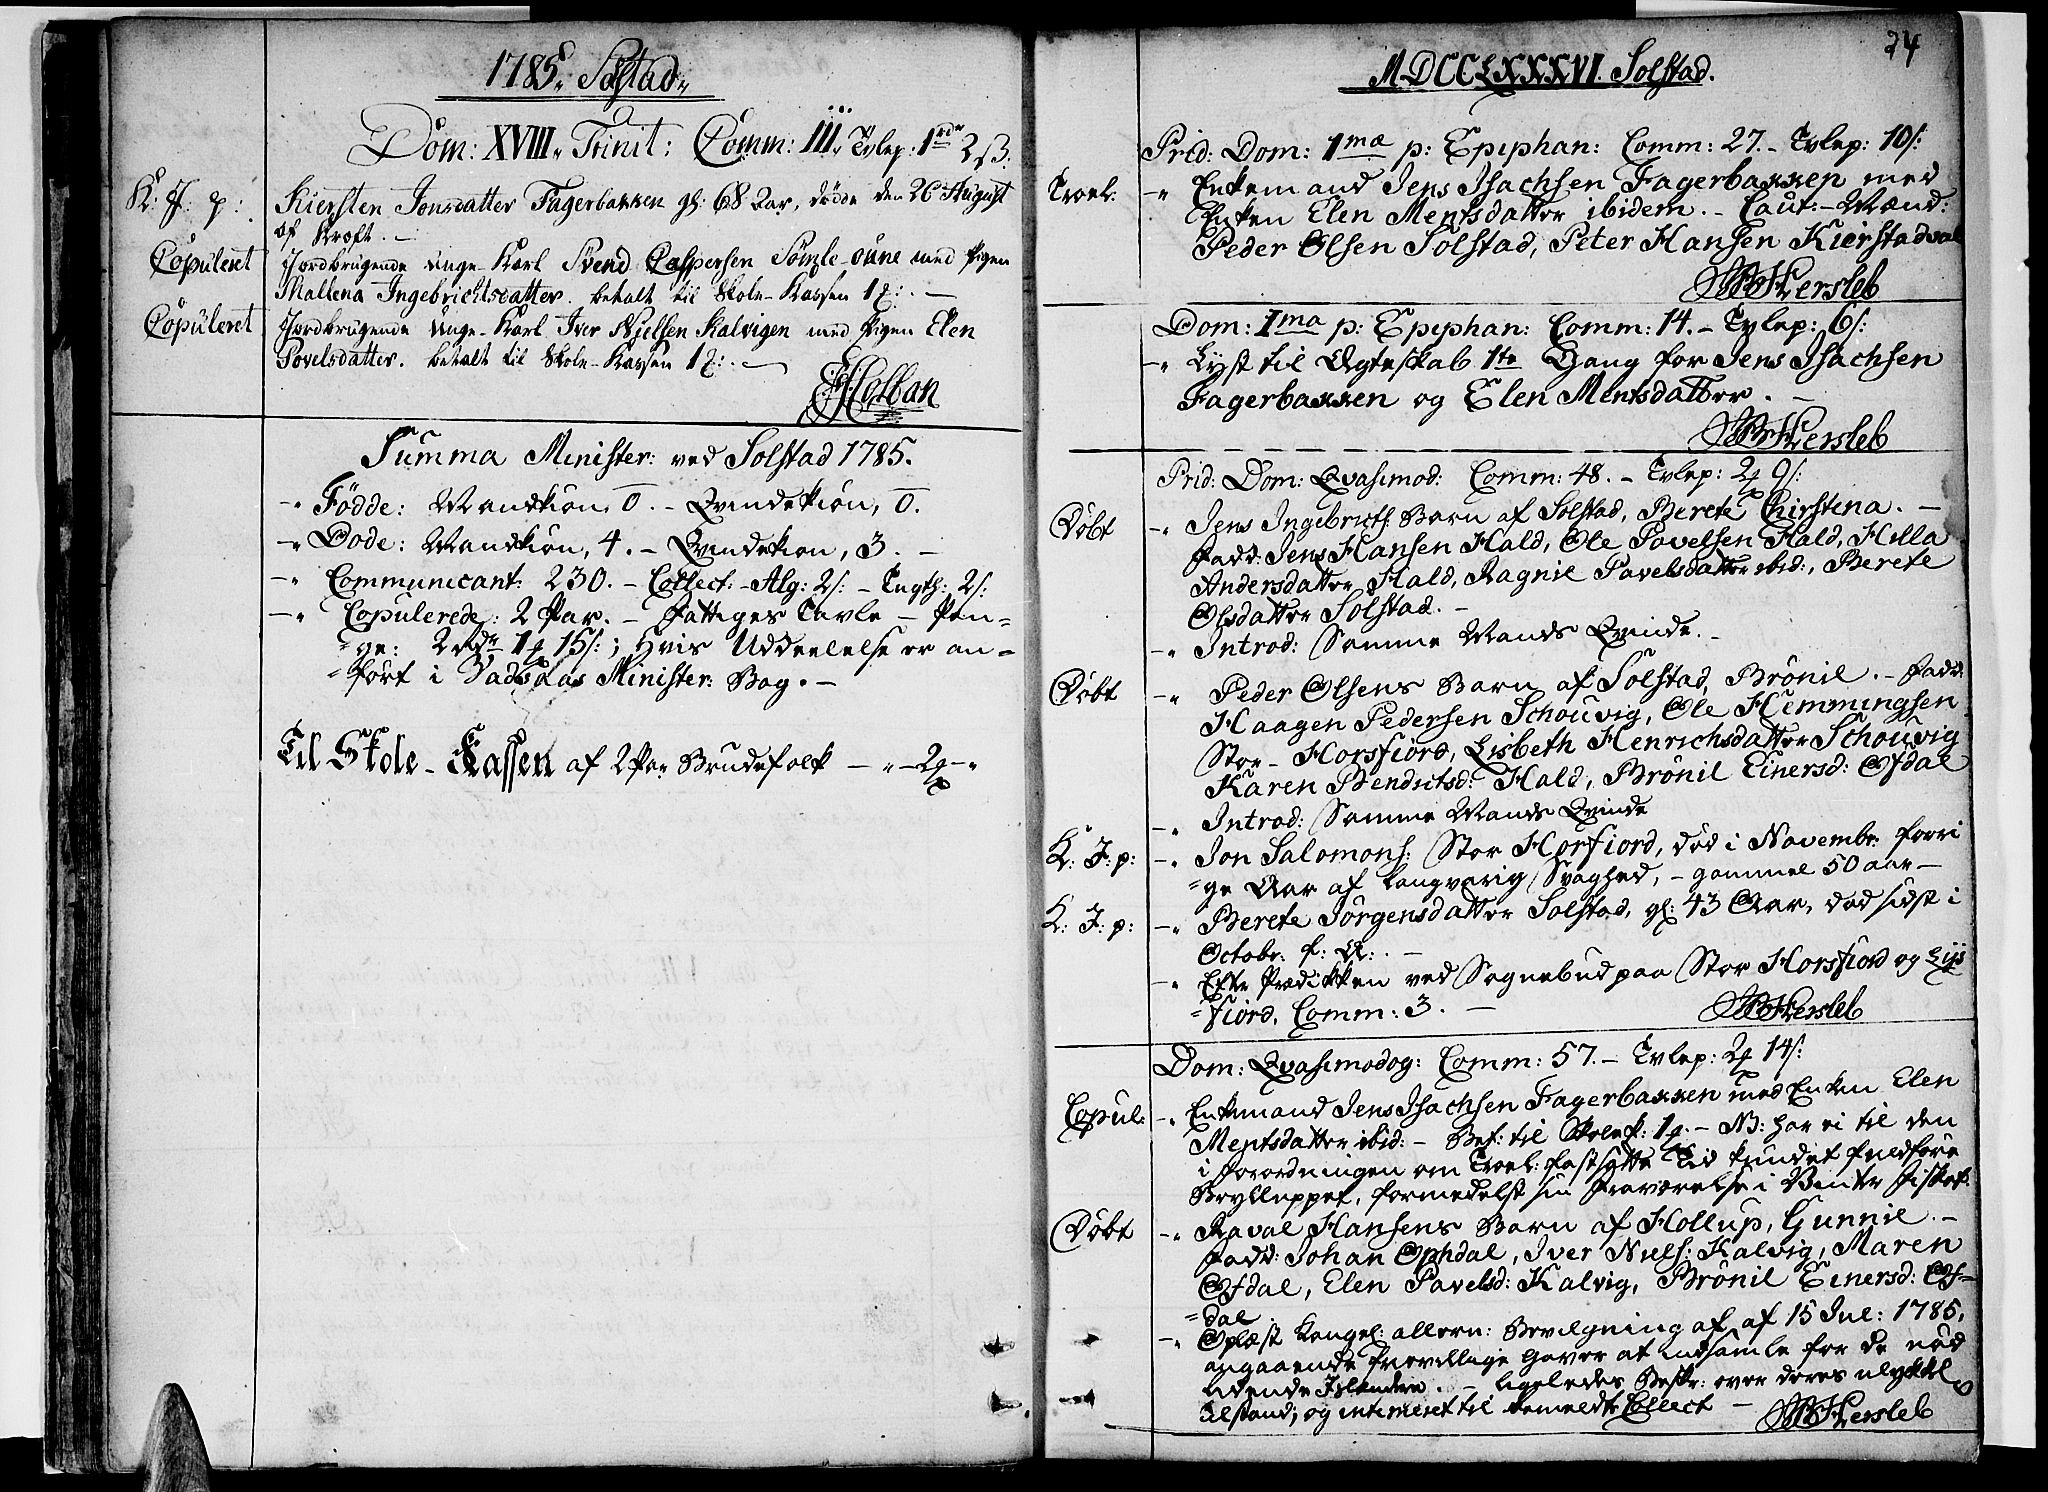 1785. Solstad.
Dom: XVIII. Trinit: Comm: 111. Tvlep: 1rdr 2 ß:
K: J: p: Kiersten Jonsdatter Fagerbakken gl: 68 Aar, døde den 26 August
af Kræft. -
Copuleret Jordbrugende Unge-Karl Svend Caspersen Sømle-oune med Pigen
Mallena Ingebrichtsdatter. betalt til Skole-Kassen 1 -
Copuleret Jordbrugende Unge-Karl Iver Nielsen Kalvigen med Pigen Elen
Povelsdatter. betalt til Skole-Kassen 1 -
Summa Minister: ved Solstad 1785.
-" Födde: Mandkiön, 0. - Qvindekiön, 0.
-" Dode: Mandkiön, 4. - Qvindekion, 3. -
-" Communicant: 230. - Collect: - Alg: 2/: - Tugth: 2/:
-" Copulerede: 2 Par. - Fattiges Tavle - Pen=
=ge: 2 rdr 15/: ; Hvis Uddeelelse er an=
=fört i Vadsaas Minister: Bog. -
Til Skole-Kassen af 2 Par Brudefolk - " - 2 - "
24
MDCCLXXXVI. Solstad.
Prid: Dom: 1mæ p: Epiphan: Comm: 27. - Tvlep: 10/:
Troel: -" Enkemand Jens Isachsen Fagerbakken med
Enken Elen Mentsdatter ibidem. - Caut: - Mænd:
Peder Olsen Solstad, Peter Hansen Kierstadval
Hersleb
Dom: 1ma p: Epiphan: Comm: 14. - Tvlep: 6/:
-" Lyst til Ægteskab 1te Gang for Jens Isachsen
Fagerbakken og Elen Mentsdatter. -
Hersleb
Prid: Dom: Qvasimod: Comm: 48. - Tvlep: 2 9/:
Döbt -" Jens Ingebricts: Barn af Solstad, Berete Chirstina. -
Fadd: Jens Hansen Hald, Ole Pavelsen Hald, Hilla
Andersdatter Hald, Ragnil Pavelsdatter ibid:, Berete
Olsdatter Solstad. -
-" Introd: Samme Mands Qvinde. -
Döbt -" Peder Olsens Barn af Solstad, Brönil. - Fadd:
Haagen Pedersen Schouvig, Ole Hemmingsen
Stor-Horsfiord, Lisbeth Henrichsdatter Schouvig
Karen Bendictsd: Hald, Brönil Einersd: Ofdal
-" Introd: Samme Mands Qvinde
K: J: p: -" Jon Salomons: Stor Horfiord, död i Novembr: forri
=ge Aar af langvarig Svaghed, - gammel 50 aar -
K: J: p: -" Berete Jörgensdatter Solstad, gl: 43 Aar, död sidst i
Octobr: f: A: . -
-" Efter Prædikken ved Sognebud paa Stor Horsfiord og Lijs
=fiord, Comm: 3. -
Hersleb
Dom: Qvasimodog: Comm: 57. - Tvlep: 2 14/:
Copul: -" Enkemand Jens Isachsen Fagerbakken med Enken Elen
Mentsdatter ibid: - Bet: til Skolek: 1 - NB: har ei til den
i Forordningen om Troel: fastsatte Tid kundet fuldföre
Brylluppet, formedelst sin Fraværelse i Vinter Fisket.
Döbt -" Raval Hansens Barn af Hollup, Gunnil. -
Fadd: Johan Ophdal, Iver Niels: Kalvig, Maren
Ofdal, Elen Pavelsd: Kalvig, Brönil Einersd: Of=
=dal.
-" Oplæst Kongel: allern: Bevilgning af af 15 Jul: 1785,
angaaende frievillige Gaver at indsamle for de nöd
lidende Islændere. - ligeledes Beskr: over deres ulykkel
tilstand; og intimeret til bemeldte Collect -
Hersleb